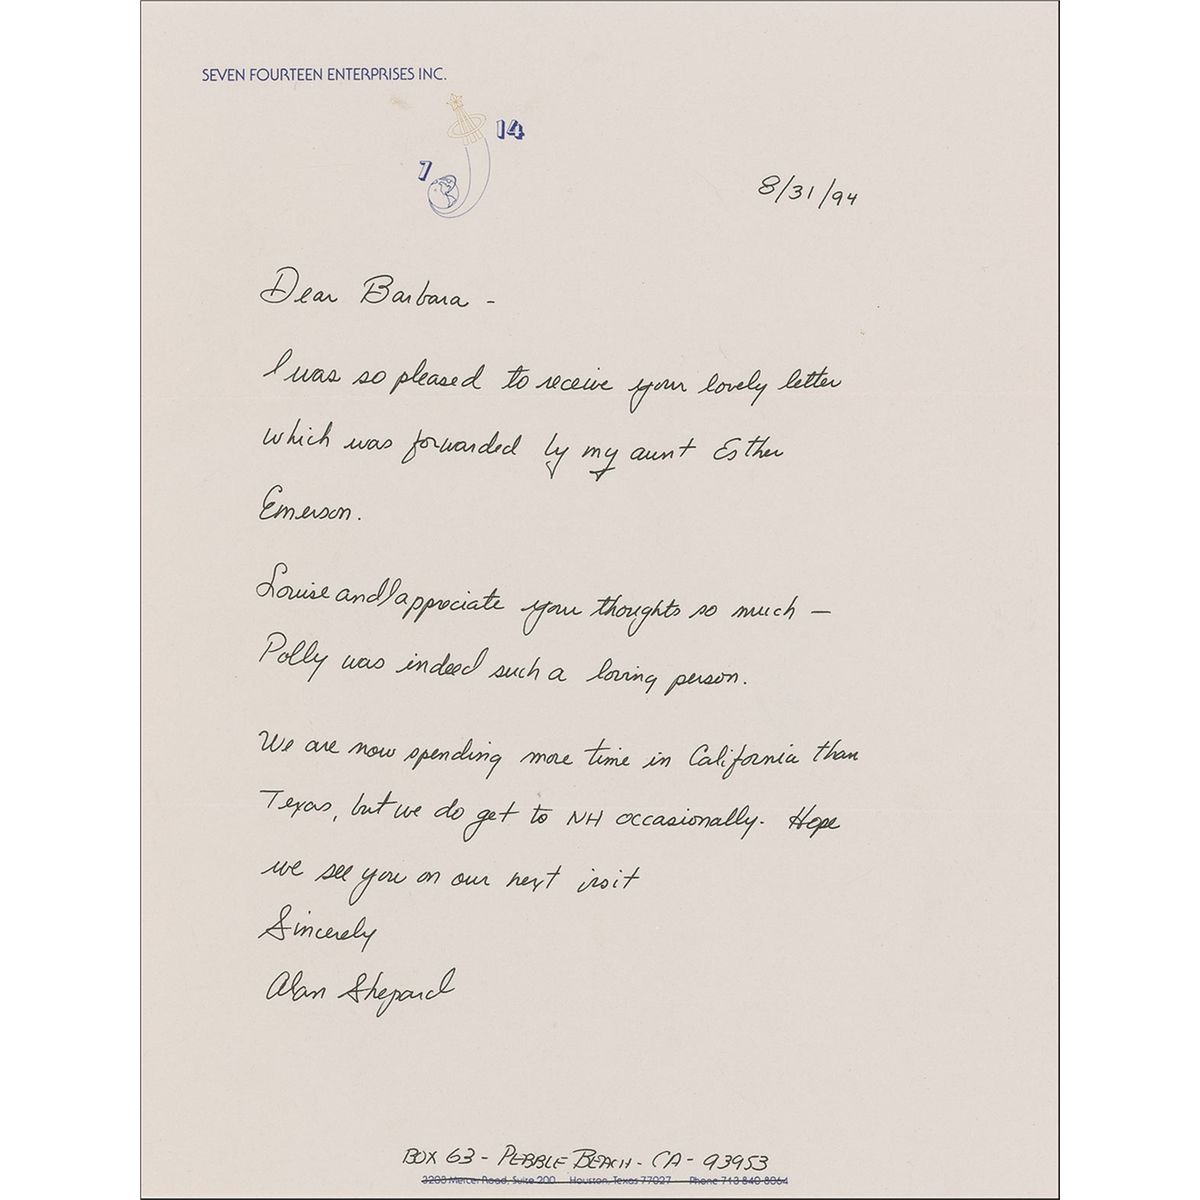 SEVEN FOURTEEN ENTERPRISES INC.
7
14
8/31/94
Dear Barbara -
I was so pleased to receive your lovely letter
which was forwarded by my aunt Esther
Emerson.
Louise and I appreciate your thoughts so much —
Polly was indeed such a loving person.
We are now spending more time in California than
Texas, but we do get to NH occasionally. Hope
we see you on our next visit
Sincerely
Alan Shepard
BOX 63 - PEBBLE BEACH - CA - 93953
3203 Mercer Road, Suite 200 Houston, Texas 77027 Phone 713 840 8064